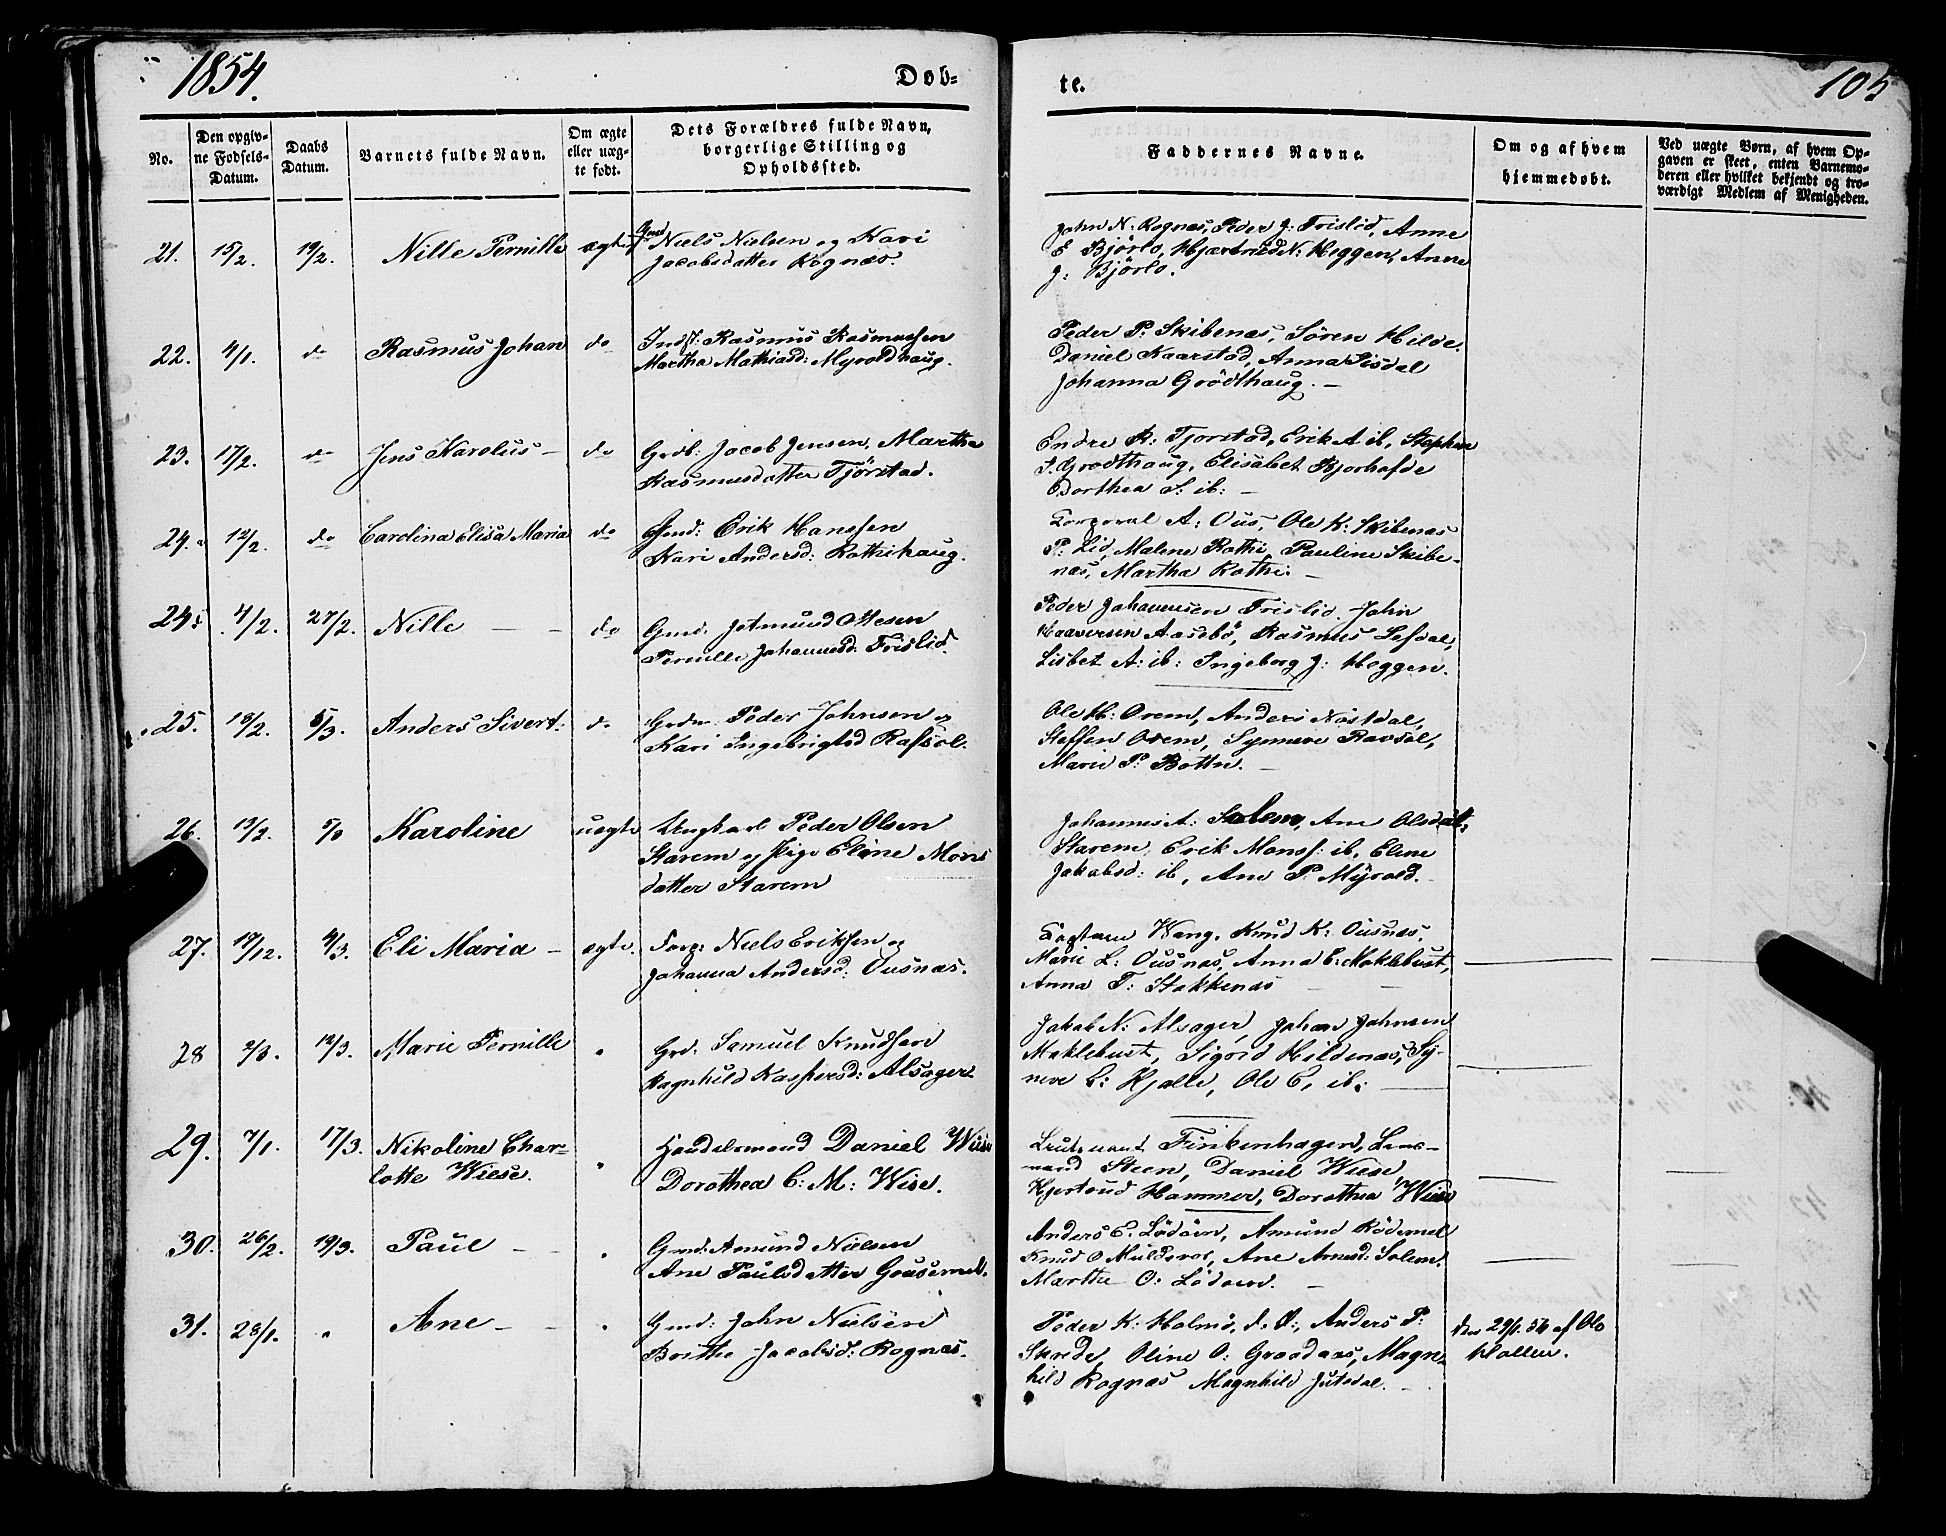 1854.
Dob=
te.
105
No.
Den opgiv=
ne Fødsels=
Datum.
Daabs
Datum.
Barnets fulde Navn.
Om ægte
eller uæg=
te født.
Dets Forældres fulde Navn,
borgerlige Stilling og
Opholdssted.
Faddernes Navne.
Om og af hvem
hjemmedøbt.
Ved uægte Børn, af hvem Op=
gaven er skeet, enten Barnemo=
deren eller hvilket bekjendt og tro=
værdigt Medlem af Menigheden.
21. 15/2. 19/2. Nille Pernille ægte Niels Nielsen og Kari
Jacobsdatter Rognæs.
John N: Rognæs, Peder J: Frislid, Anne
E Bjørlo, N: Heggen, Anne
J: Bjørlo.
22. 4/1. do Rasmus Johan do Inds: Rasmus Rasmussen
Martha Mathiasd: Myroldhaug.
Peder P. Skibenæs, Søren Hilde.
Daniel Kaarstad, Anna Lisdal
Johanna Grødthaug. —
23. 17/2. do Jens Karolus — do Grdb: Jacob Jensen, Martha
Rasmusdatter Tjørstad.
Endre R: Tjorstad, Erik A. ib, Stephen
S. Grodthaug, Elisabet
Dorthea S: ib: —
24. 12/2. do Carolina Elisa Maria do Gmd: Erik Hanssen
Kari Andersd: Rothihaug.
Corporal A: Ous, Ole K: Skibenæs
P: Lid, Malene Rothi, Pauline Skibe-
næs, Martha Rothi. —
24 4/2. 27/2. Nille — — do Gmd. Jetmund Ottesen
Pernille Johannesd: Frislid.
Peder Johannesen Frislid. John
Aasebø, Rasmus Lefdal,
Lisbet A: ib: Ingeborg J: Heggen.
25. 18/2. 5/3. Anders Sivert. do Grdm. Peder Johnsen og
Kari Ingebrigtsd Rafsol.
Ole H: Orem, Anders Nøstdal,
Steffen Orem, Synneve Ravsol,
Marie P: Bottn. —
26. 13/2. Karoline uægte Ungkarl Peder Olsen
Starem og Pige Eline Mons
datter Starem
Johannes A: Solem, Ane Olsdat:
Starem, Erik Monss: ib, Eline
Jakobsd: ib, Ane P. Myrold.
27. 17/12. 4/3. Eli Maria — ægte. Niels Eriksen og
Johanna Andersd: Ousnæs.
Wang, Knud K: Ousnæs,
Marie L: Ousnæs, Anna E: Maklebust,
Anna T: Stokkenæs
28 2/3. 12/3. Marie Pernille " Grd: Samuel Knudsen
Ragnhild Kaspersd: Alsager
Jakob N: Alsager, Johan Johnsen
Maklebust, Sigrid Hildenæs, Sy-
neve E: Hjalle, Ole E, ib.
29. 7/1. 17/3. Nikoline Char=
lotte Wiese. " Handelsmand Daniel Wiese
Dorothea C: M: Wise.
Leutenant Finkenhagen, Lens-
mand Steen, Daniel Wiese
Hjertrud Hammer, Dorothea Wiese
30. 26/2. 19/3. Paul — " Gmd: Amund Nielsen
Ane Paulsdatter Grusemel.
Anders E. Lödöen, Amund Rödemel
Knud O Muldsvor, Ane Arnesd: Solem.
Marthe O: Lödoen. —
31. 28/1. " Ane — — " Gmd: John Nielsen
Brithe Jacobsd: Rognæs.
Peder K: Holmö, d. O:, Anders P:
Skrede, Oline O: Grodaas, Magn-
hild Rognæs Magnhild Jutedal. —
den 29/1. 54 af Ole
Hollen.